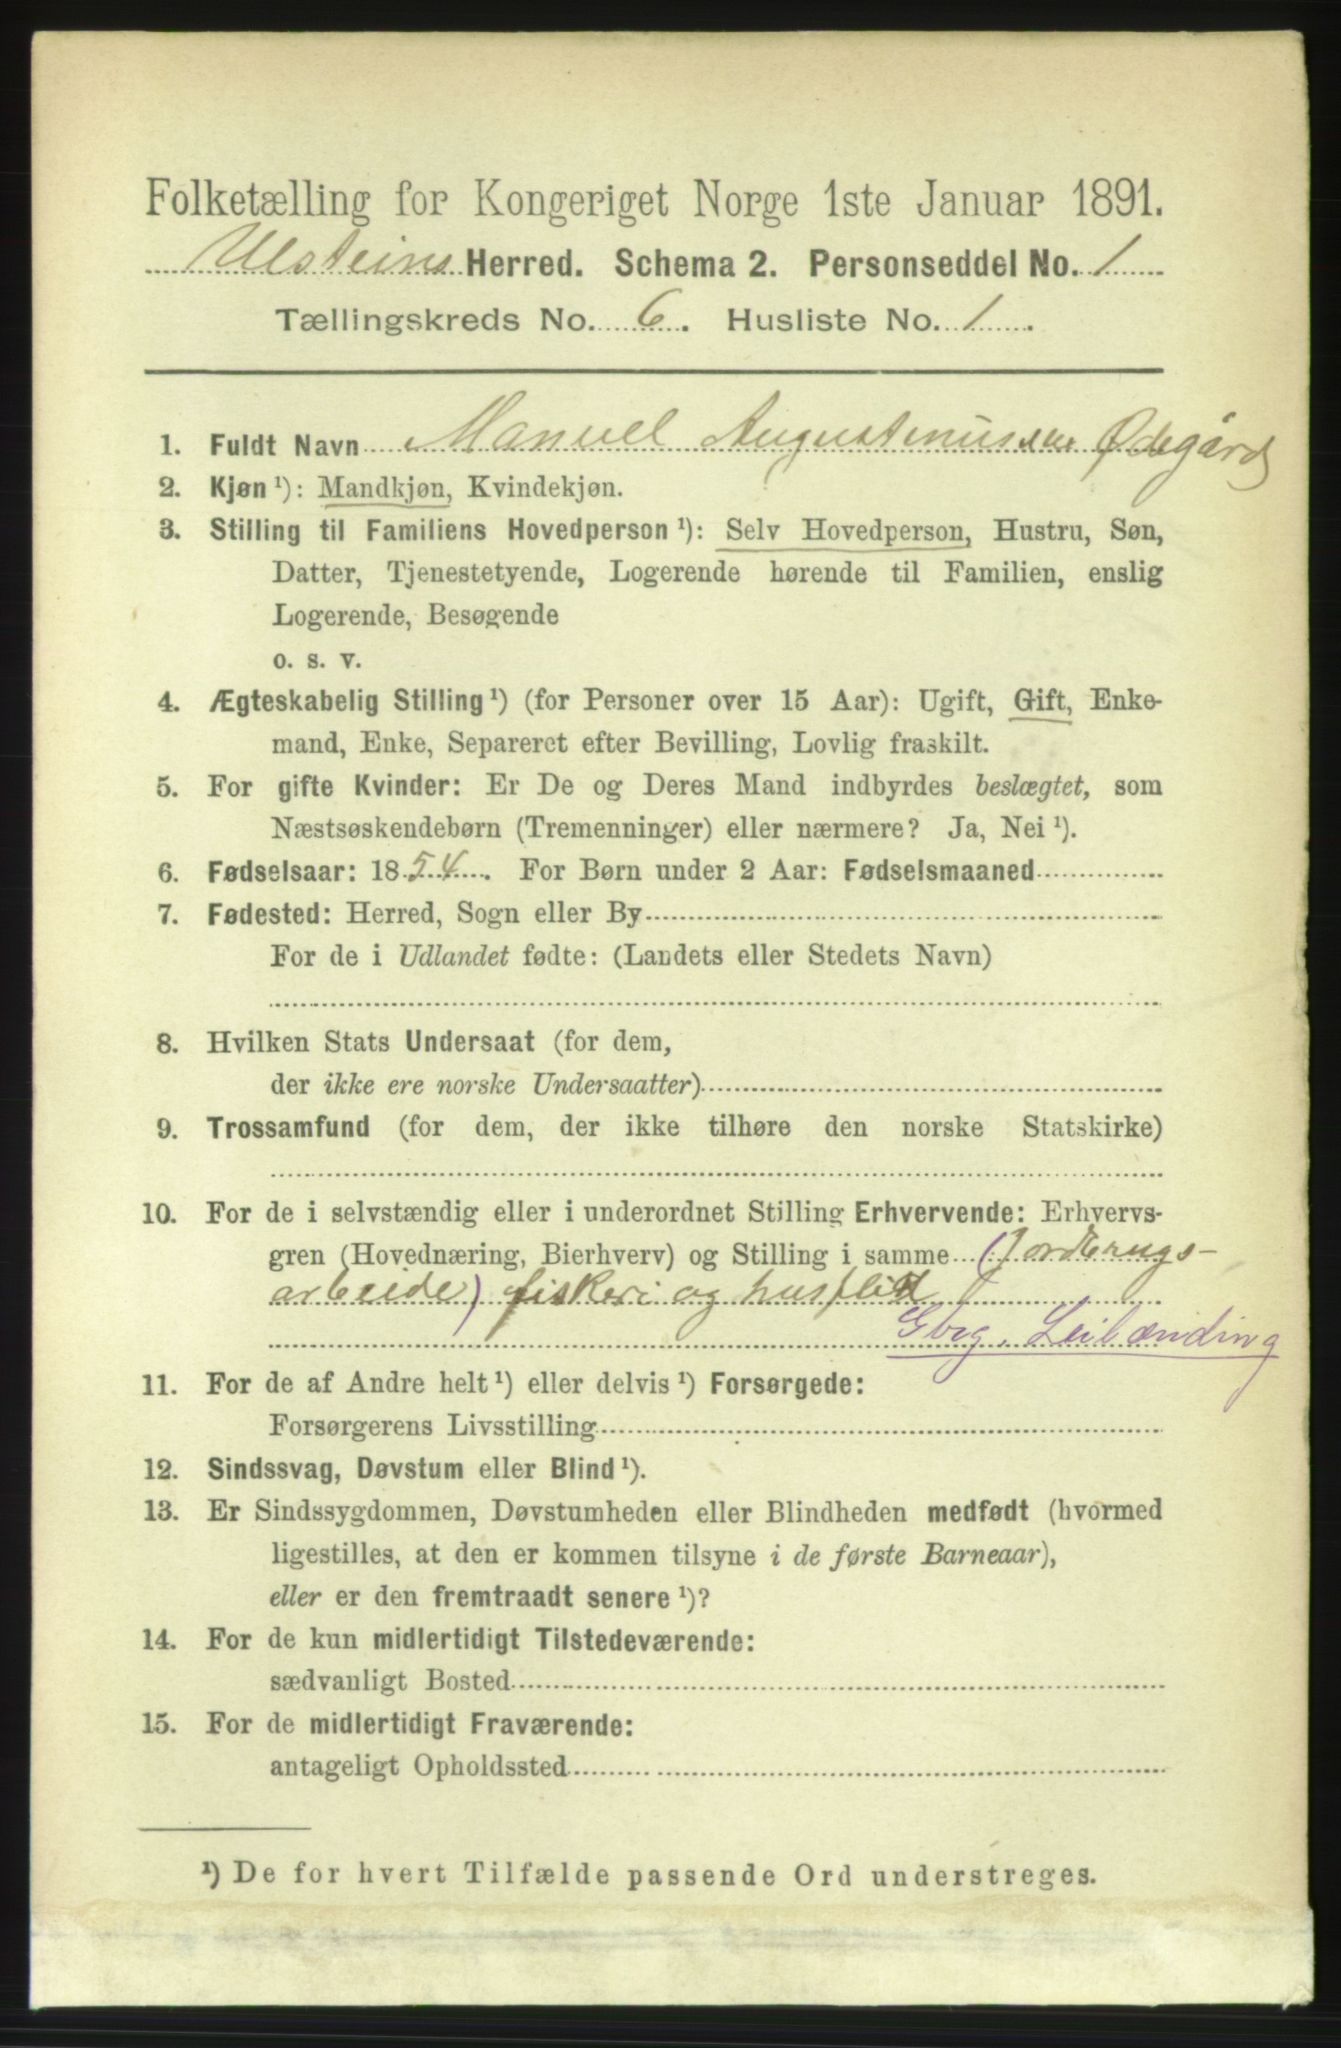 Folketælling for Kongeriget Norge 1ste Januar 1891.
Ulsteins Herred. Schema 2. Personseddel No. 1
Tællingskreds No. 6. Husliste No. 1.
1. Fuldt Navn Manuel Augustinussen Ødegård
2. Kjøn ¹): Mandkjøn, Kvindekjøn.
3. Stilling til Familiens Hovedperson ¹): Selv Hovedperson, Hustru, Søn,
Datter, Tjenestetyende, Logerende hørende til Familien, enslig
Logerende, Besøgende
o. s. v.
4. Ægteskabelig Stilling ¹) (for Personer over 15 Aar): Ugift, Gift, Enke-
mand, Enke, Separeret efter Bevilling, Lovlig fraskilt.
5. For gifte Kvinder: Er De og Deres Mand indbyrdes beslægtet, som
Næstsøskendebørn (Tremenninger) eller nærmere? Ja, Nei ¹).
6. Fødselsaar: 1854. For Børn under 2 Aar: Fødselsmaaned
7. Fødested: Herred, Sogn eller By
For de i Udlandet fødte: (Landets eller Stedets Navn)
8. Hvilken Stats Undersaat (for dem,
der ikke ere norske Undersaatter)
9. Trossamfund (for dem, der ikke tilhøre den norske Statskirke)
10. For de i selvstændig eller i underordnet Stilling Erhvervende: Erhvervs-
gren (Hovednæring, Bierhverv) og Stilling i samme (Jordbrugs-
arbeide) fiskeri og husflid
Gbrg. Leilænding
11. For de af Andre helt ¹) eller delvis ¹) Forsørgede:
Forsørgerens Livsstilling
12. Sindssvag, Døvstum eller Blind ¹).
13. Er Sindssygdommen, Døvstumheden eller Blindheden medfødt (hvormed
ligestilles, at den er kommen tilsyne i de første Barneaar),
eller er den fremtraadt senere ¹)?
14. For de kun midlertidigt Tilstedeværende:
sædvanligt Bosted
15. For de midlertidigt Fraværende:
antageligt Opholdssted
¹) De for hvert Tilfælde passende Ord understreges.